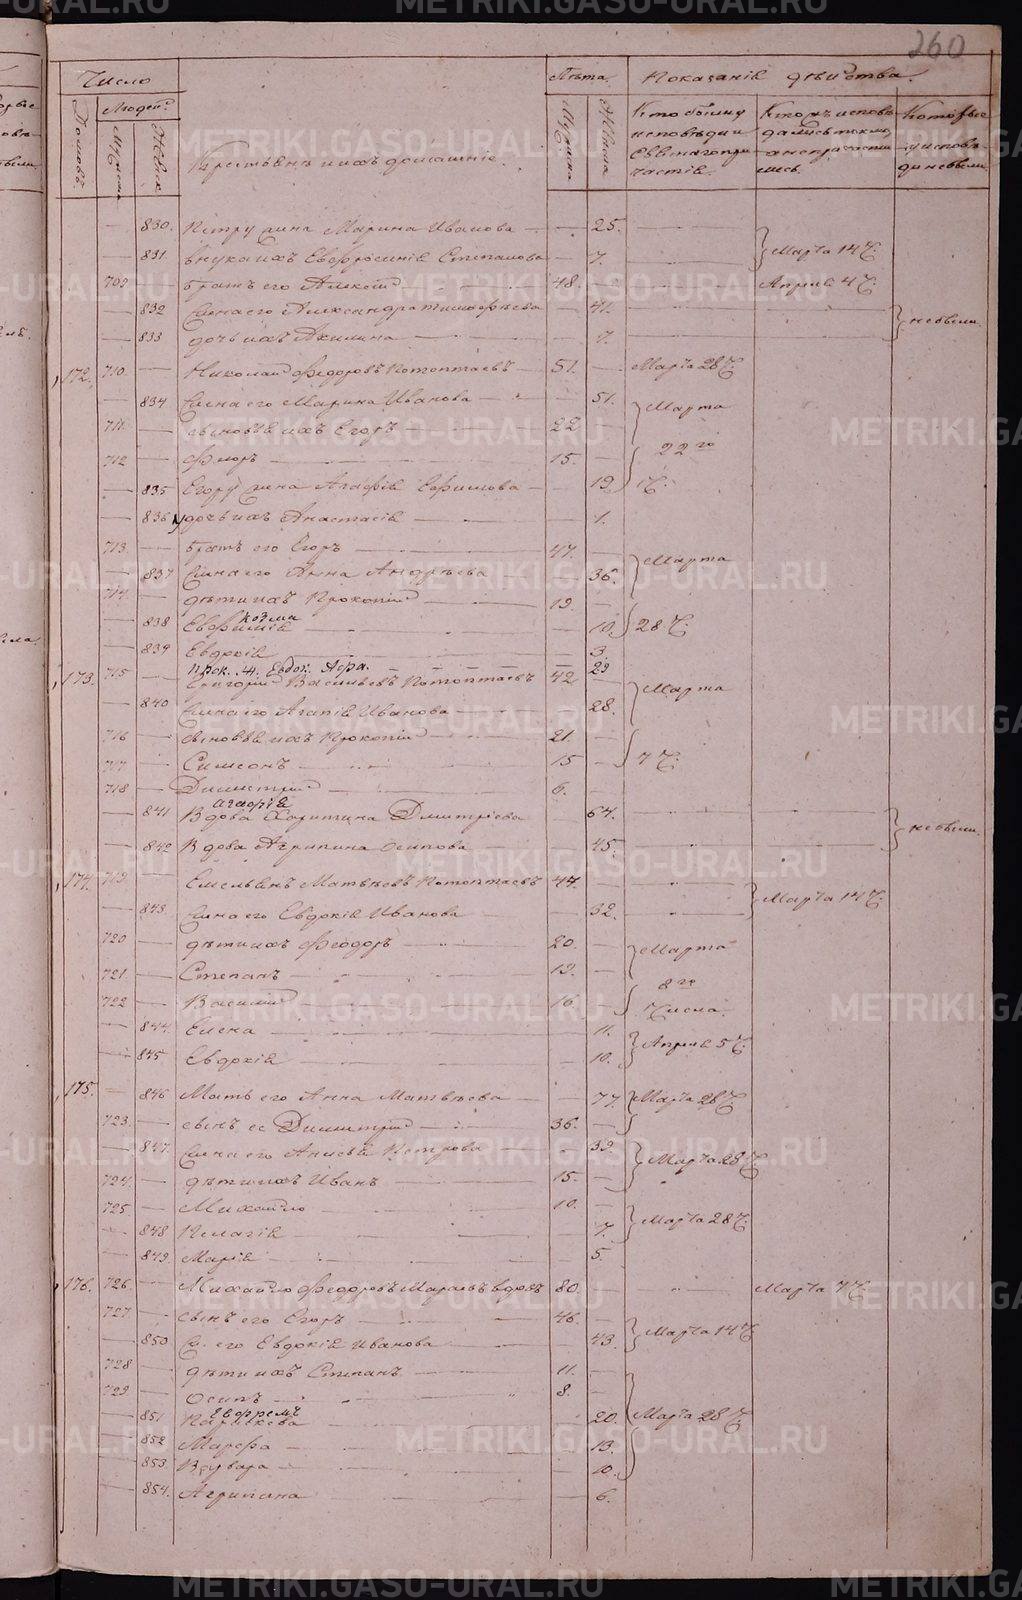 260
Число
Лѣта.
Показаніе дѣйства.
Домовъ.
Людей.
Мужеска
Женск
Крестьяне и ихъ домашніе.
Мужеска
Женска
Кто были у исповѣди и св. таинъ причастія.
Кто исповѣдались токмо а не причастились.
Которые у исповѣди не были.
830. Петру жена Марина Иванова 25.
831. внука ихъ Евфросинія Степанова 7. Марта 14 Ч.
709 братъ его Алексій 48. Апрѣля 4 Ч.
832 Жена его Александра Тимофѣева 41.
833 дочь ихъ Акилина 7. не были.
172. 710. Николай Федоровъ Потоптаевъ 51. Марта 28 Ч.
834 Жена его Марина Иванова 51. Марта
711. сыновья ихъ Егоръ 22
712 Флоръ 15. 22 го
835 Егору жена Агафія Ефимова 19 Ч.
836 дочь ихъ Анастасія 1.
713. братъ его Егоръ 47. Марта
837 Жена его Анна Андрѣева 36.
714. дѣти ихъ Прокопій 19.
Козми
838 Евфимія 10. 28 Ч.
839 Евдокія 3
Прок. Ж. Евдок. Агра. 29
173. 715 Григорій Васильевъ Потоптаевъ 42 Марта
840 Жена его Агапія Иванова 28.
716 сыновья ихъ Прокопій 21
717 Симеонъ 15 7 Ч.
718 Димитрій 6.
Агафія
841 Вдова Харитина Дмитріева 64.
842 Вдова Агрипина Осипова 45. не были.
174. 719. Емельянъ Матвѣевъ Потоптаевъ 44.
843. Жена его Евдокія Иванова 32. Марта 14 Ч.
720 дѣти ихъ Феодоръ 20. Марта
721. Степанъ 19. 8 го
722 Василій 16. Числа.
844. Елена 11. Апрѣля 5 Ч.
845. Евдокія 10.
175. 846 Мать его Анна Матвѣева 77. Марта 28 Ч.
723. сынъ ее Димитрій 36.
847. Жена его Анисья Петрова 39. Марта 28 Ч.
724. дѣти ихъ Иванъ 15.
725. Михайло 10. Марта 28 Ч.
848 Пелагія 7.
849. Марія 5.
176. 726. Михайло Федоровъ вдовъ 80. Марта 7 Ч.
727. сынъ его Егоръ 46. Марта 14 Ч.
850 Ж. его Евдокія Иванова 43.
728 дѣти ихъ Степанъ 11.
729 Осипъ 8.
Евфремъ
851 Параскева 20. Марта 28 Ч.
852 Марфа 13.
853 Варвара 10.
854. Агрипина 6.
METRIKI.GASO-URAL.RU